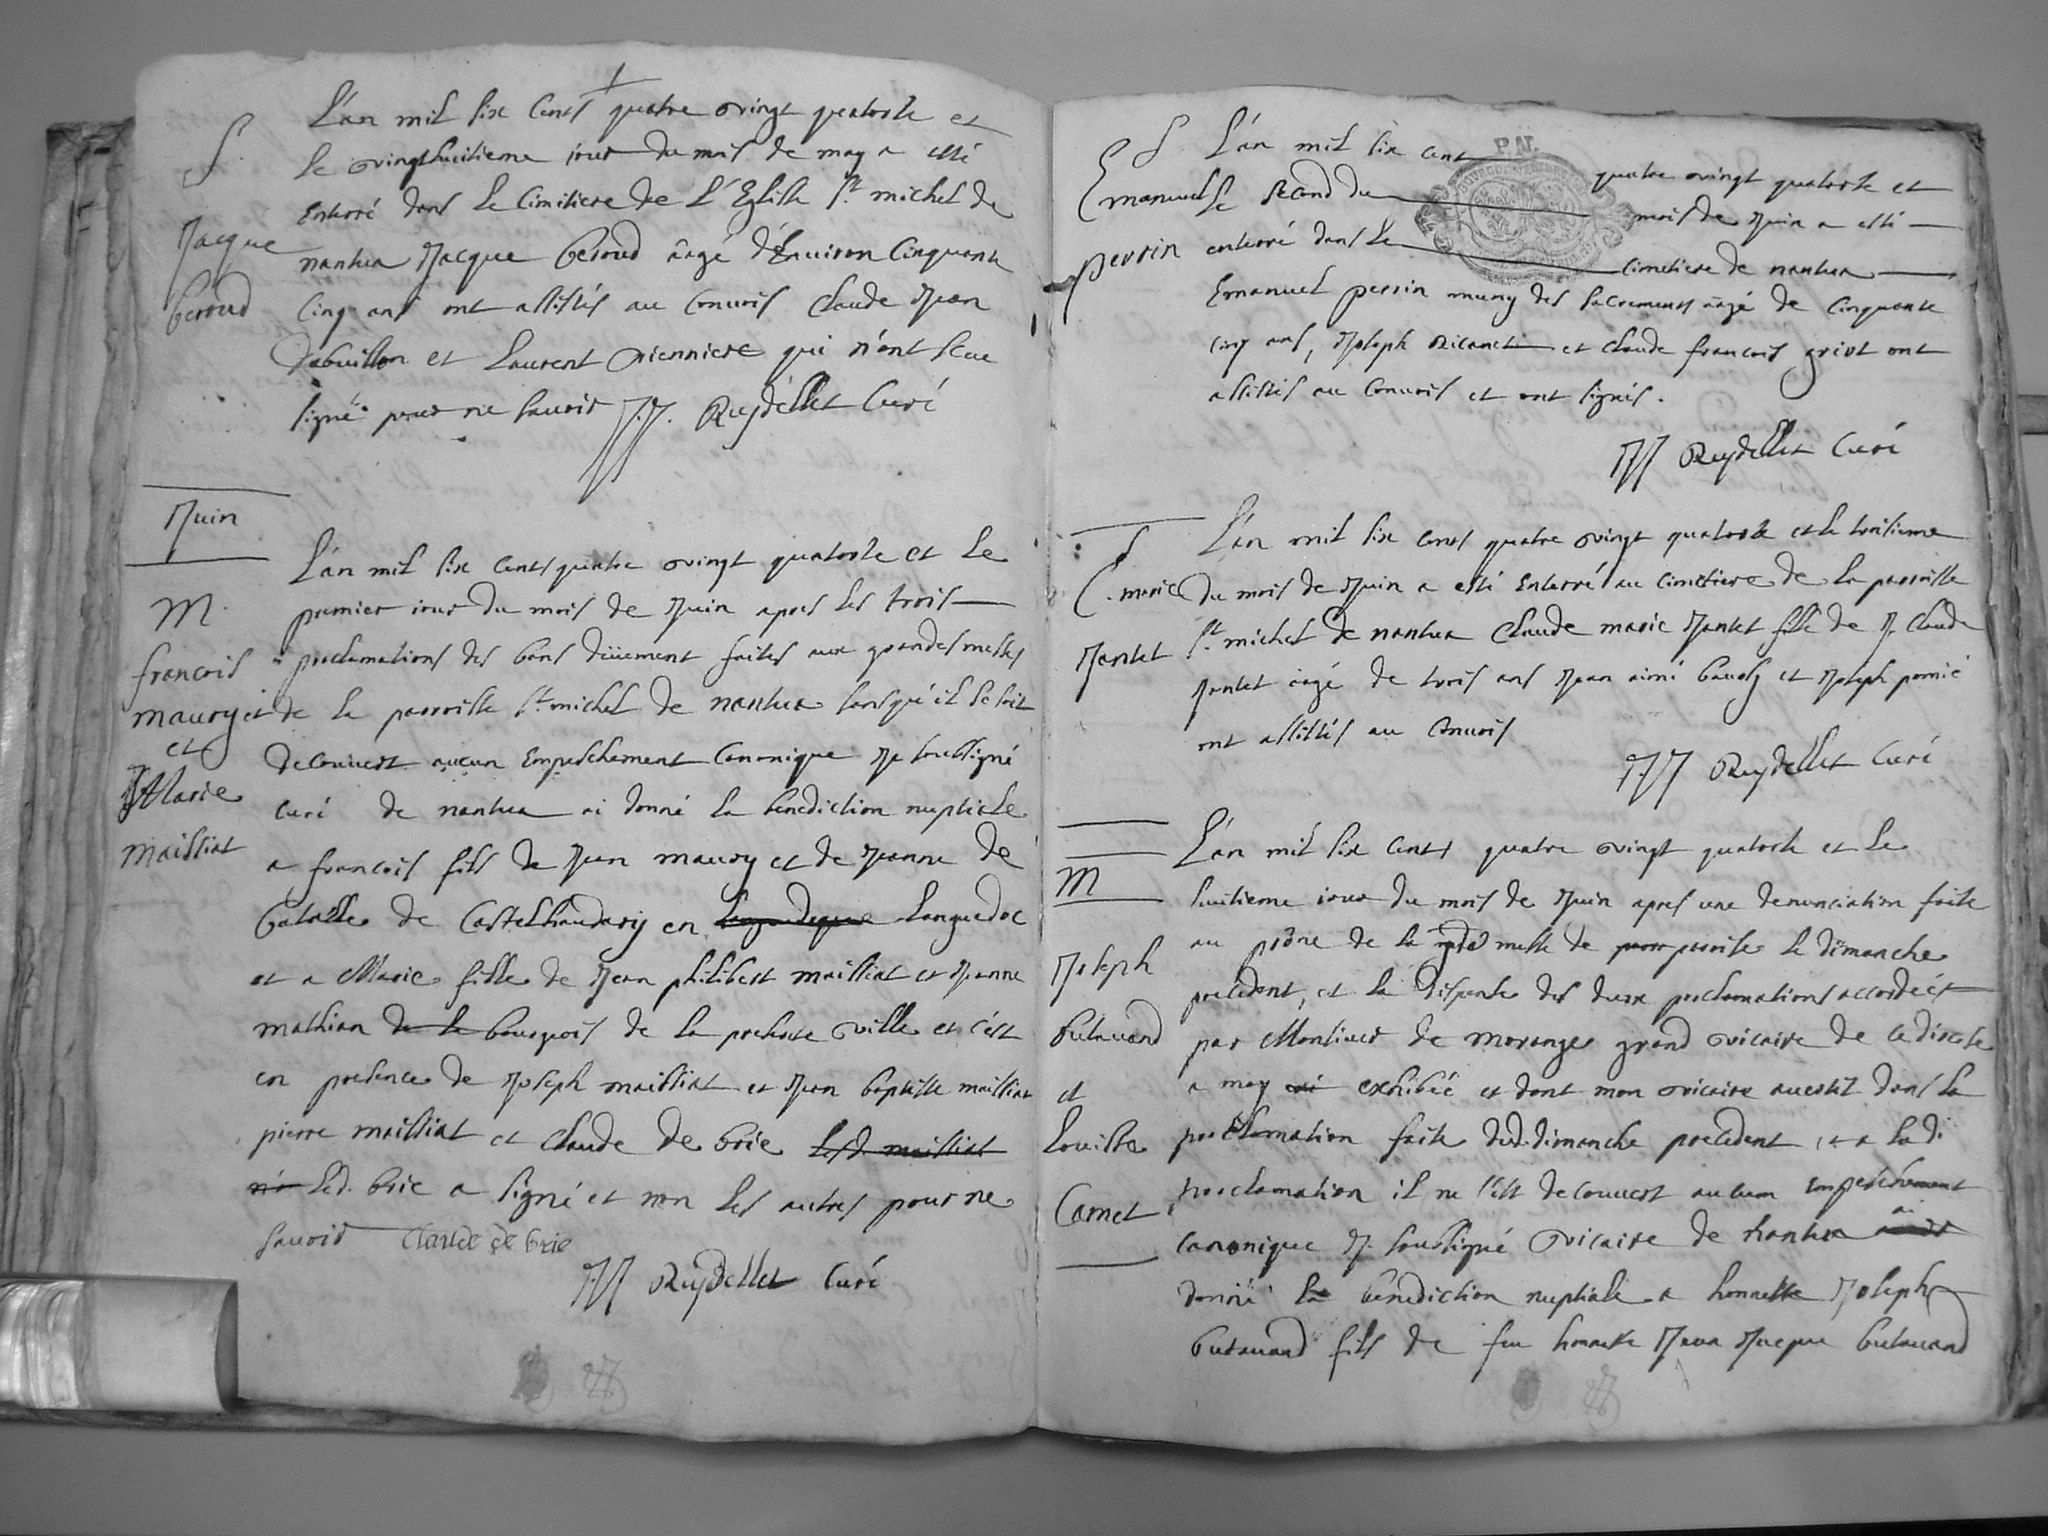 S.
Jacque
beroud
L'an mil six cents quatre vingt quatorze et
le vingthuitieme iour du mois de may a esté
enterré dans le Cimitiere de L'Eglise St. michel de
nantua Jacque beroud aagé d'Enuiron Cinquante
Cinq ans ont assistés au Conuois Claude Jean
et Laurent qui n'ont sceu
signé pour ne sauoir J.J. Reydellet Curé
Juin
M.
francois
maury
et
Marie
maissiat
L'an mil six cents quatre vingt quatorze et le
premier iour du mois de Juin apres les trois
proclamations des bans düement faites aux grandes messes
et de la parroisse St. michel de nantua sans qu'il se soit
decouuert aucun Empeschement Canonique Je soubsigné
curé de nantua ai donné la benediction nuptiale
a francois fils de Jean maury et de Jeanne de
bataille de Castelnaudary en Languedoc
et a Marie fille de Jean philibert maissiat et Jeanne
mathian de la bourgeois de la presente ville et c'est
en presence de Joseph maissiat et Jean baptiste maissiat
pierre maissiat et Claude de brie les d. maissiat
n'o led. brie a signé et non les autres pour ne
sauoir Claude de brie
JJ Reydellet Curé
S
Emanuel
perrin
P.N.
L'an mil six cent quatre vingt quatorze et
le second du mois de Juin a esté
enterré dans le cimetiere de nantua
Emanuel perrin muny des sacrements aagé de cinquante
cinq ans, Joseph et claude francois griot ont
assistés au conuois et ont signés.
JJ Reydellet Curé
S
C. marie
Jantet
L'an mil six cents quatre vingt quatorze et le troisieme
du mois de Juin a esté Enterré au cimetiere de la parroisse
St. michel de nantua Claude marie Jantet fille de J. Claude
Jantet aagé de trois ans Jean aimé et Joseph
ont assistés au Conuois
JJ Reydellet Curé
M
Joseph
butauand
et
Louisse
Carnet
L'an mil six cents quatre vingt quatorze et le
huitieme iour du mois de Juin apres une denunciation faite
au prône de la grde messe de paroisse le dimanche
precedent, et la dispense des deux proclamations accordées
par Monsieur de morange grand vicaire de ce diocese
a moy exhibée et dont mon vicaire auertit dans la
proclamation faite dud. dimanche precedent, et a lad.
proclamation il ne s'est decouuert aucun Empeschement
canonique J. soubsigné vicaire de nantua ai
donné la benediction nuptiale a honneste Joseph
butauand fils de feu honneste Jean Jacque butauand